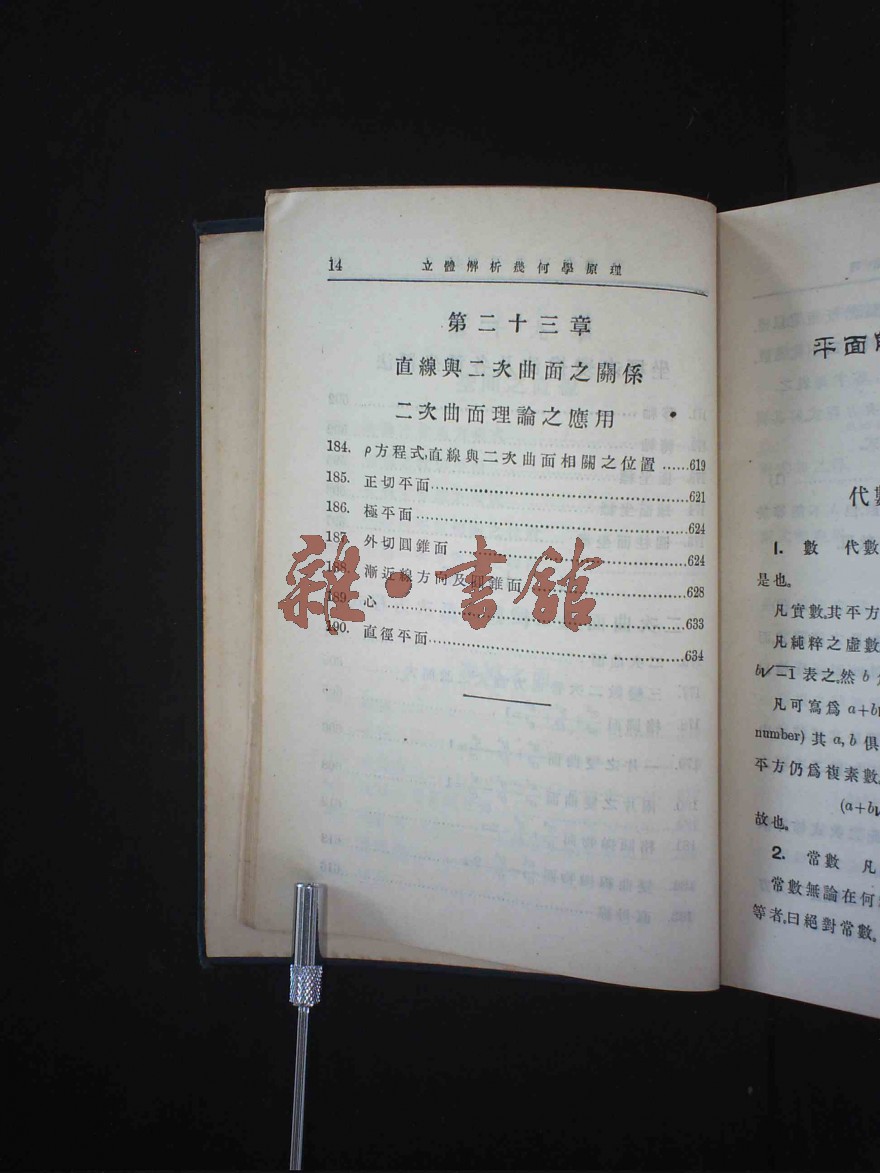 14 立體解析幾何學原理
第二十三章
直線與二次曲面之關係
二次曲面理論之應用
184. ρ方程式,直線與二次曲面相關之位置 ......619
185. 正切平面........................621
186. 極平面........................624
187. 外切圓錐面 ........................624
188. 漸近線方向及圓錐面........................628
189. 心 ........................633
190. 直徑平面........................634
雜·書館
平面
代數
1. 數 代數
是也。
凡實數,其平方
凡純粹之虛數
b√−1 表之,然 b
凡可寫爲 a+b
number) 其 a, b 俱
平方仍爲複素數,
(a+b
故也。
2. 常數 凡
常數無論在何
等者,曰絕對常數。